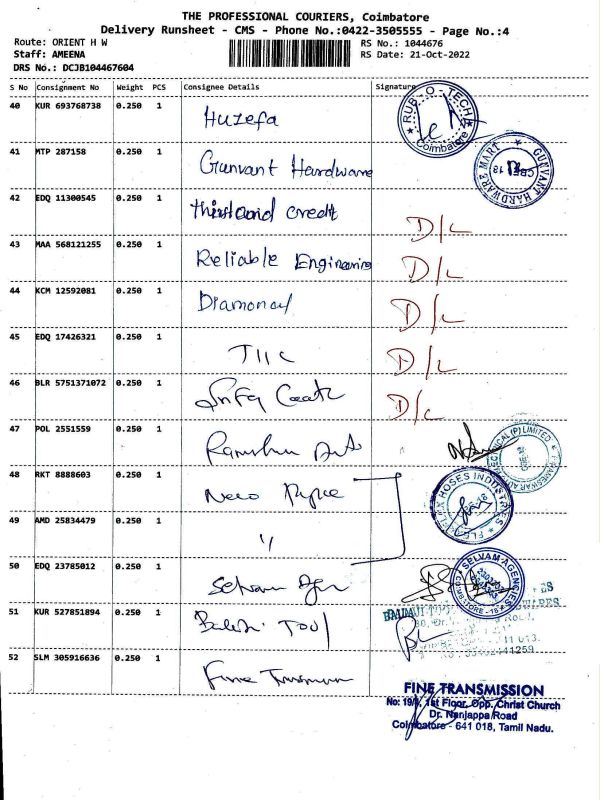 THE PROFESSIONAL COURIERS, Coimbatore
Delivery Runsheet - CMS - Phone No.:0422-3505555 - Page No.:4
Route: ORIENT H W
RS No.: 1044676
Staff: AMEENA
RS Date: 21-Oct-2022
DRS No.: DCJB104467604
S No Consignment No Weight PCS Consignee Details Signature
40 KUR 693768738 0.250 1 Huzefa
RUB-O-TECH
Coimbatore
41 MTP 287158 0.250 1 Gunvant Hardware
GUNVANT HARDWARE MART
42 EDQ 11300545 0.250 1 credit D/L
43 MAA 568121255 0.250 1 Reliable Engineering D/L
44 KCM 12592081 0.250 1 Diamond D/L
45 EDQ 17426321 0.250 1 TIIC D/L
46 BLR 5751371072 0.250 1 D/L
47 POL 2551559 0.250 1
48 RKT 8888603 0.250 1
HOSES INDUSTRIES
49 AMD 25834479 0.250 1 〃
50 EDQ 23785012 0.250 1 Selvam
SELVAM AGENCIES
COIMBATORE - 18
51 KUR 527851894 0.250 1 Balaji Tool
52 SLM 305916636 0.250 1 Fine
FINE TRANSMISSION
1st Floor, Opp. Christ Church
Dr. Nanjappa Road
Coimbatore - 641 018, Tamil Nadu.